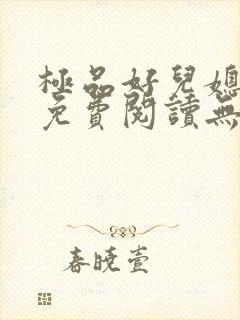 極品好兒媳
免費閱讀無
春曉壹